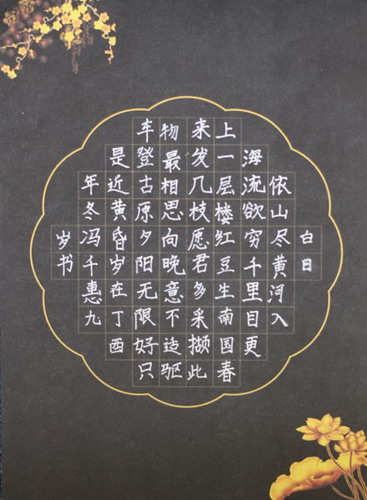 白日
依山尽黄河入
海流欲穷千里目更
上一层楼红豆生南国春
来发几枝愿君多采撷此
物最相思向晚意不适驱
车登古原夕阳无限好只
是近黄昏岁在丁酉
年冬冯千惠九
岁书